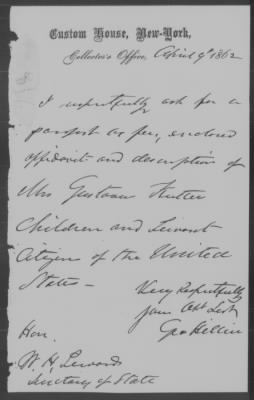 Custom House, New-York,
Collector's Office, April 9th 1862
I respectfully ask for a
passport as per, enclosed
affidavit and description of
Mrs Gustave
Children and Servant
Citizen of the United
States –
Very Respectfully
Your Obt Svt
Geo
Hon.
W. H. Seward
Secretary of State